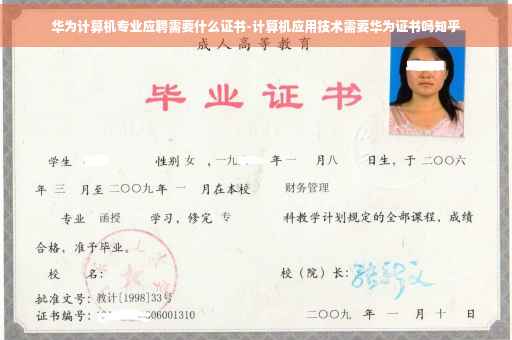 华为计算机专业应聘需要什么证书-计算机应用技术需要华为证书吗知乎
成人高等教育
毕业证书
学生 性别 女 ,一九 年 一 月八 日生，于 二〇〇六
年 三 月至 二〇〇九 年 一 月在本校 财务管理
专业 函授 学习，修完 专 科教学计划规定的全部课程，成绩
合格，准予毕业。
校 名： 校（院）长：
批准文号：教计[1998]33号
证书编号： 06001310 二〇〇九 年 一 月 十 日